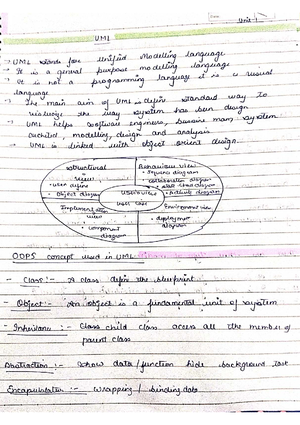 Date
Unit-1
UML
→ UML stands for Unified Modelling language
→ It is a general purpose modelling language
→ It is not a programming language it is a visual
language
→ The main aim of UML is define standard way to
visualize the way system has been design
→ UML helps software engineers, system
modelling, design and analysis
→ UML is linked with object orient design.
Structural
view
• User define
• Object diagram
Behaviour view
• Sequence diagram
• collaboration diagram
• state chart diagram
• Activity diagram
User view
Use case
Implementation
view
• component
diagram
Environment view
• deployment
diagram
OOPS concept used in UML
Class:- A class define the blueprint
- Object:- An object is a fundamental unit of system
- Inheritance:- Class child class access all the member of
parent class
Abstraction:- show data/function hide background
Encapsulation - wrapping / binding data